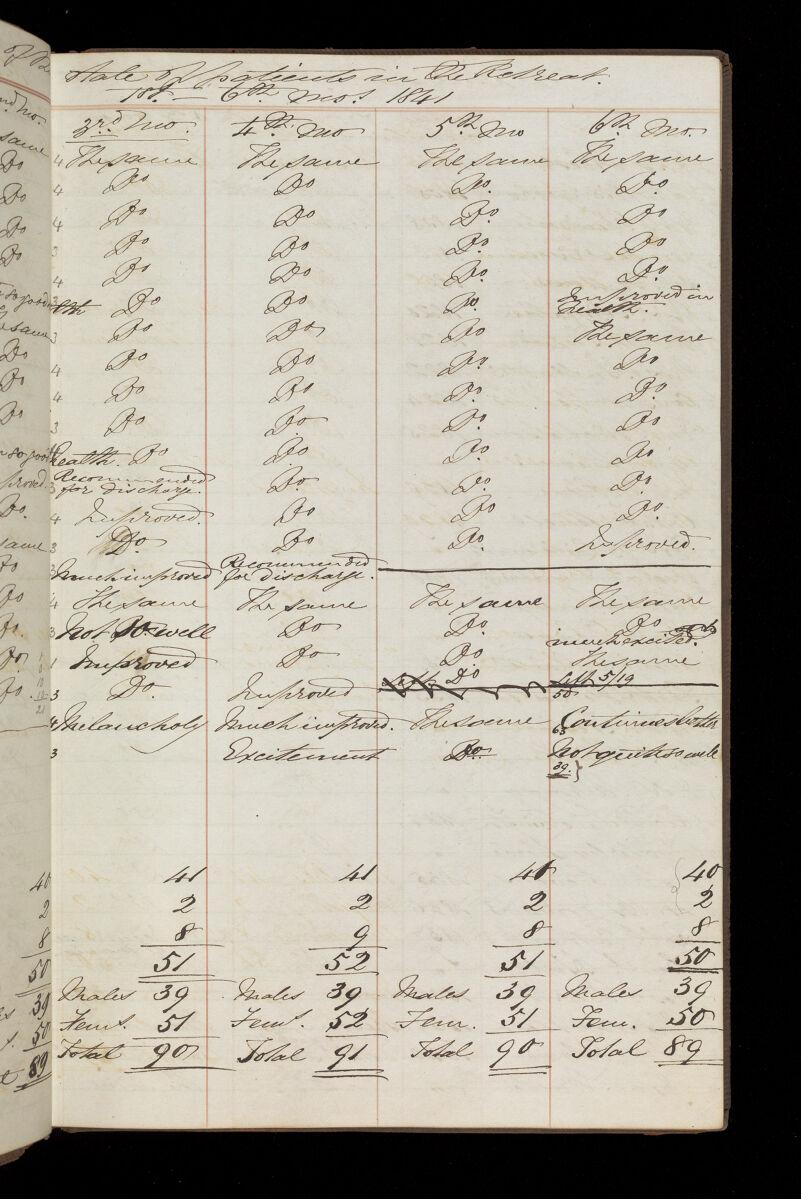 State of patients in the Retreat.
1st — 6th mos 1841
3rd mo. 4th mo 5th mo 6th mo.
4 The same The same The same The same
4 Do Do Do. Do.
4 Do Do Do. Do
3 Do Do Do. Do
4 Do Do Do. Do.
3 Do Do Do. Improved in health.
3 Do Do Do The same
4 Do Do Do. Do
4 Do Do Do. Do.
3 Do Do Do. Do
health. Do Do. Do. Do
3 Recommended for discharge. Do. Do. Do.
4 Improved. Do Do. Do.
3 Do. Do Do. Improved.
3 Much improved Recommended for discharge.
4 The same The same The same The same
3 Not so well Do Do. Do much excited.
1 Improved Do Do The same
3 Do. Improved left Do left 5/19
50
4 Melancholy Much improved. The same Continues better
63
3 Excitement Do. Not quite so well
39. }
41 41 40 40
2 2 2 2
8 9 8 8
51 52 51 50
Males 39 Males 39 Males 39 Males 39
Fems. 51 Fems. 52 Fem. 51 Fem. 50
Total 90 Total 91 Total 90 Total 89
nd mo.
same
Do
Do
Do
Do
so good
same
Do
Do
Do
so good
proved.
Do.
same
Do
Do
Do.
Do.
Do.
40
2
8
50
39
50
89